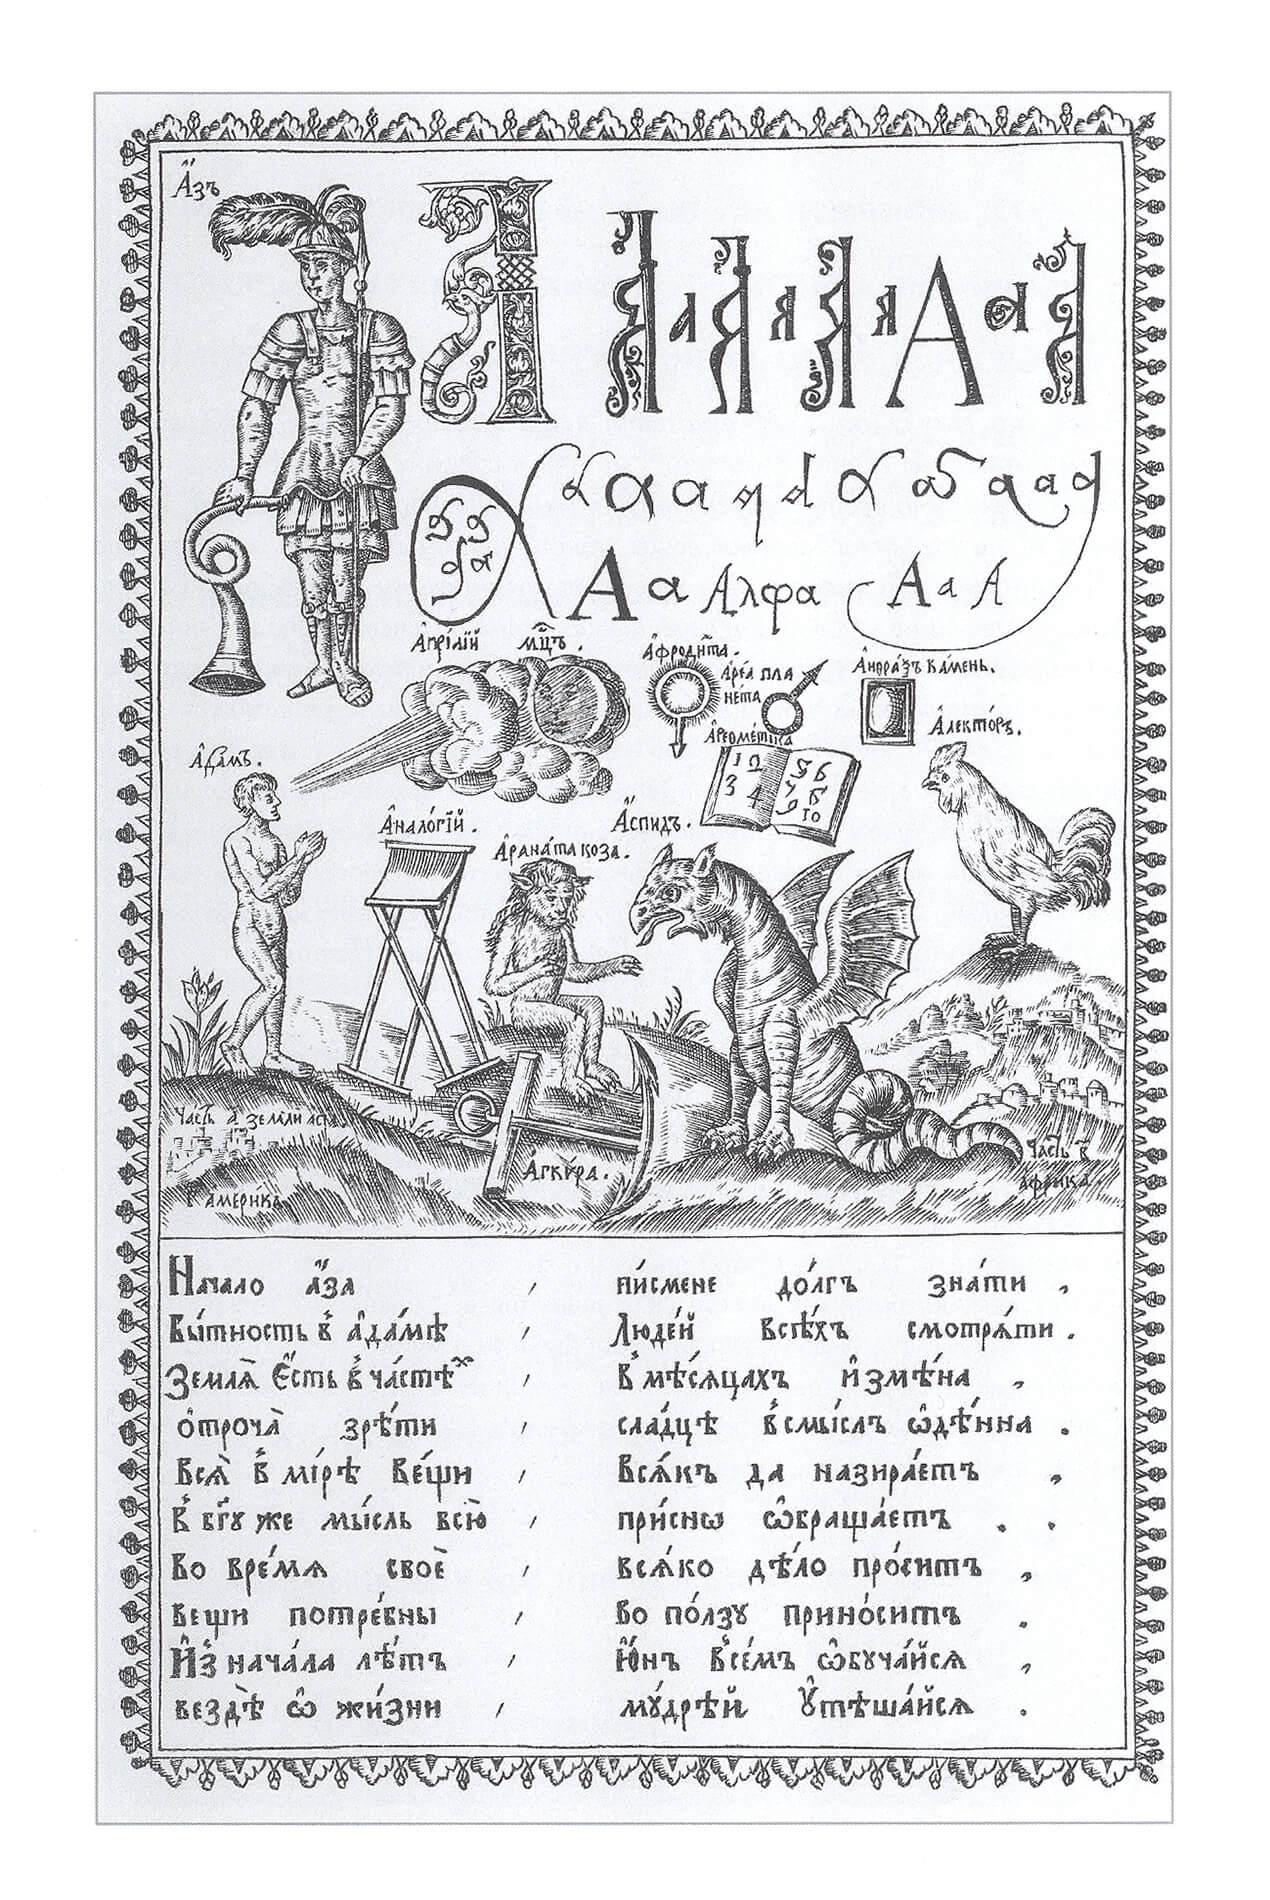 А҆́зъ
А а А а А а А а А
а а а а а а а а а а а а
А а Алфа А а А
А҆прі́лїй мц҃ъ.
А҆фроди́та.
А҆ре́а пла
не́та
А҆нѳра́ѯъ ка́мень.
А҆леѡме́тіка
1 2
3 4
5 6
7 8
9 10
А҆ле́кто́ръ.
А҆да́мъ.
А҆нало́гїй.
А҆́спидъ.
А҆рана́та коза.
Ча́сть а҃ земли асїа.
г҃ америка.
А҆гкѵ́ра.
Ча́сть в҃
африка.
Нача́ло а҆́за , пи́смене до́лгъ зна́ти ,
Бы́тность в̾ а҆да́мѣ , Люде́й всѣ́хъ смотрѧ́ти .
Землѧ̀ є҆́сть в̾ ча́стѣхъ , в̾ мѣ́сѧцахъ и҆змѣ́на ,
ѻ҆троча̀ зрѣ́ти , сла́дцѣ в̾ смы́слъ ѡ҆дѣ́нна .
Всѧ̀ в̾ мі́рѣ ве́щи , всѧ́къ да назира́етъ ,
В̾ бг҃у же мы́сль всю̀ , при́снѡ ѡ҆браща́етъ . .
Во вре́мѧ своѐ , всѧ́ко дѣ́ло про́ситъ ,
вещи потре́бны , во по́лзу прино́ситъ .
И҆з̾ нача́ла лѣ́тъ , Ю҆́нъ в̾се́мъ ѡ҆буча́йсѧ ,
вездѣ̀ ѡ҆ жи́зни , му́дрѣй ᲂу҆тѣша́йсѧ .